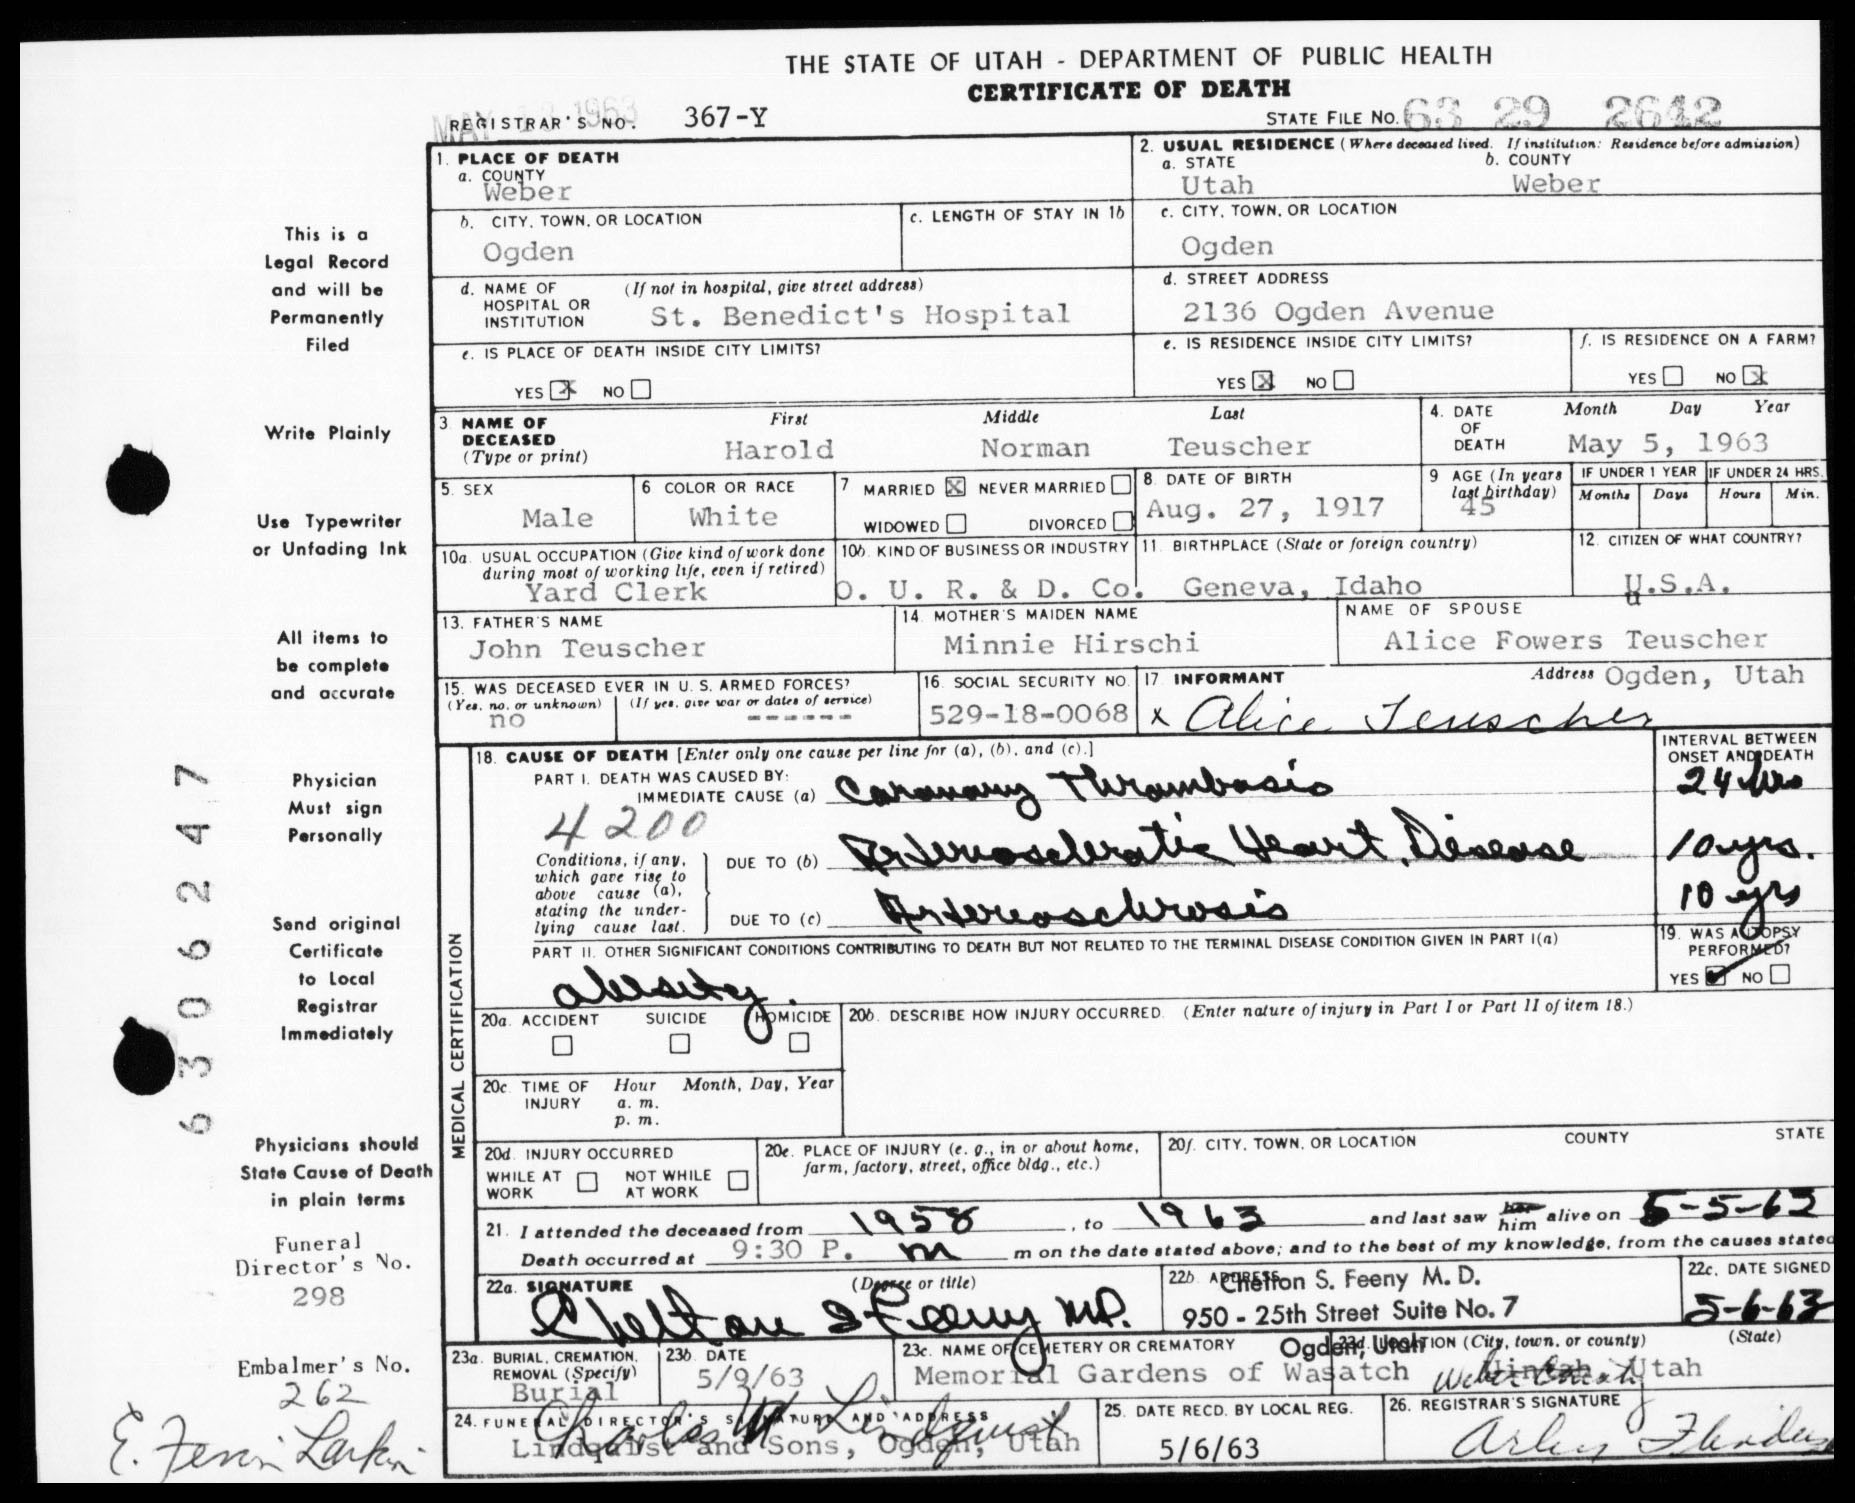 THE STATE OF UTAH - DEPARTMENT OF PUBLIC HEALTH
CERTIFICATE OF DEATH
MAY 1963
REGISTRAR'S NO. 367-Y
STATE FILE NO. 63 29 2642
1. PLACE OF DEATH
a. COUNTY
Weber
2. USUAL RESIDENCE (Where deceased lived. If institution: Residence before admission)
a. STATE
Utah
b. COUNTY
Weber
b. CITY, TOWN, OR LOCATION
Ogden
c. LENGTH OF STAY IN 1b
c. CITY, TOWN, OR LOCATION
Ogden
d. NAME OF HOSPITAL OR INSTITUTION
(If not in hospital, give street address)
St. Benedict's Hospital
d. STREET ADDRESS
2136 Ogden Avenue
e. IS PLACE OF DEATH INSIDE CITY LIMITS?
YES X NO
e. IS RESIDENCE INSIDE CITY LIMITS?
YES X NO
f. IS RESIDENCE ON A FARM?
YES NO X
3. NAME OF DECEASED
(Type or print)
First Middle Last
Harold Norman Teuscher
4. DATE OF DEATH
Month Day Year
May 5, 1963
5. SEX
Male
6 COLOR OR RACE
White
7 MARRIED X NEVER MARRIED
WIDOWED DIVORCED
8. DATE OF BIRTH
Aug. 27, 1917
9 AGE (In years last birthday)
45
IF UNDER 1 YEAR
Months Days
IF UNDER 24 HRS.
Hours Min.
10a. USUAL OCCUPATION (Give kind of work done during most of working life, even if retired)
Yard Clerk
10b. KIND OF BUSINESS OR INDUSTRY
O. U. R. & D. Co.
11. BIRTHPLACE (State or foreign country)
Geneva, Idaho
12. CITIZEN OF WHAT COUNTRY?
U.S.A.
13. FATHER'S NAME
John Teuscher
14. MOTHER'S MAIDEN NAME
Minnie Hirschi
NAME OF SPOUSE
Alice Fowers Teuscher
15. WAS DECEASED EVER IN U. S. ARMED FORCES?
(Yes, no, or unknown) (If yes, give war or dates of service)
no ------
16. SOCIAL SECURITY NO.
529-18-0068
17. INFORMANT
Address Ogden, Utah
x Alice Teuscher
18. CAUSE OF DEATH [Enter only one cause per line for (a), (b), and (c).]
PART I. DEATH WAS CAUSED BY:
IMMEDIATE CAUSE (a) Coronary Thrombosis
INTERVAL BETWEEN ONSET AND DEATH
24 hrs
4200
Conditions, if any, which gave rise to above cause (a), stating the underlying cause last.
DUE TO (b) Arteriosclerotic Heart Disease
10 yrs.
DUE TO (c) Arteriosclerosis
10 yrs
PART II. OTHER SIGNIFICANT CONDITIONS CONTRIBUTING TO DEATH BUT NOT RELATED TO THE TERMINAL DISEASE CONDITION GIVEN IN PART I(a)
obesity.
19. WAS AUTOPSY PERFORMED?
YES NO
MEDICAL CERTIFICATION
20a. ACCIDENT SUICIDE HOMICIDE
20b. DESCRIBE HOW INJURY OCCURRED. (Enter nature of injury in Part I or Part II of item 18.)
20c. TIME OF INJURY
Hour Month, Day, Year
a. m.
p. m.
20d. INJURY OCCURRED
WHILE AT WORK NOT WHILE AT WORK
20e. PLACE OF INJURY (e. g., in or about home, farm, factory, street, office bldg., etc.)
20f. CITY, TOWN, OR LOCATION COUNTY STATE
21. I attended the deceased from 1958, to 1963 and last saw her him alive on 5-5-63
Death occurred at 9:30 P. m m on the date stated above; and to the best of my knowledge, from the causes stated
22a. SIGNATURE (Degree or title)
Chelton S Feeny MD.
22b. ADDRESS
Chelton S. Feeny M. D.
950 - 25th Street Suite No. 7
Ogden, Utah
22c. DATE SIGNED
5-6-63
23a. BURIAL, CREMATION, REMOVAL (Specify)
Burial
23b. DATE
5/9/63
23c. NAME OF CEMETERY OR CREMATORY
Memorial Gardens of Wasatch
23d. LOCATION (City, town, or county) (State)
Weber County Utah
24. FUNERAL DIRECTOR'S SIGNATURE AND ADDRESS
Charles W Lindquist
Lindquist and Sons, Ogden, Utah
25. DATE RECD. BY LOCAL REG.
5/6/63
26. REGISTRAR'S SIGNATURE
This is a
Legal Record
and will be
Permanently
Filed
Write Plainly
Use Typewriter
or Unfading Ink
All items to
be complete
and accurate
Physician
Must sign
Personally
Send original
Certificate
to Local
Registrar
Immediately
Physicians should
State Cause of Death
in plain terms
Funeral
Director's No.
298
Embalmer's No.
262
E. Larkin
6306247